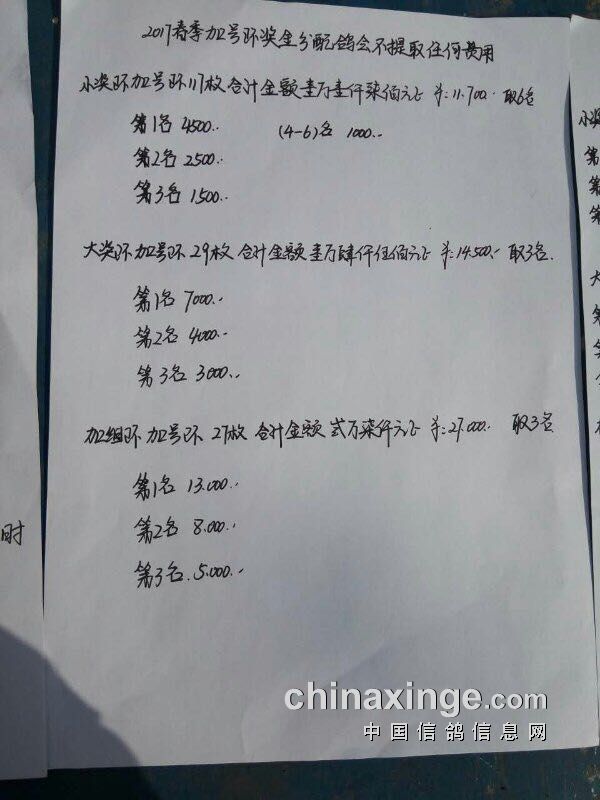 2017春季加号环奖金分配鸽会不提取任何费用
小奖环加号环117枚合计金额壹万壹仟柒佰元正 羊:11.700. 取6名
第1名 4500.. (4-6)名 1000..
第2名 2500..
第3名 1500..
大奖环加号环 29枚 合计金额壹万肆仟伍佰元正 羊:14.500.- 取3名.
第1名 7000..
第2名 4000..
第3名 3000..
加组环加号环 27枚 合计金额 贰万柒仟元正 羊:27.000. 取3名
第1名 13.000..
第2名 8.000..
第3名.5.000..
时
小奖
第
第
第
大
第
chinaxinge.com
中国信鸽信息网